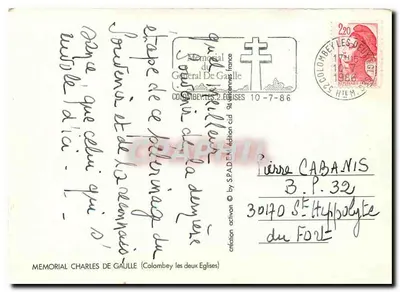 Quel meilleur
souvenir de la dernière
étape de ce pèlerinage du
Souvenir et de la reconnais-
sance, que celui qui s'
envole d'ici
Memorial
du
General De Gaulle
COLOMBEY LES 2 EGLISES 10-7-86
2,20
COLOMBEY LES DEUX
10-7
1986
52 Hte M.
Pierre CABANIS
B.P. 32
30170 St Hippolyte
du Fort
création activan © by S.P.A.D.E.M. édition cid
MEMORIAL CHARLES DE GAULLE (Colombey les deux Eglises)